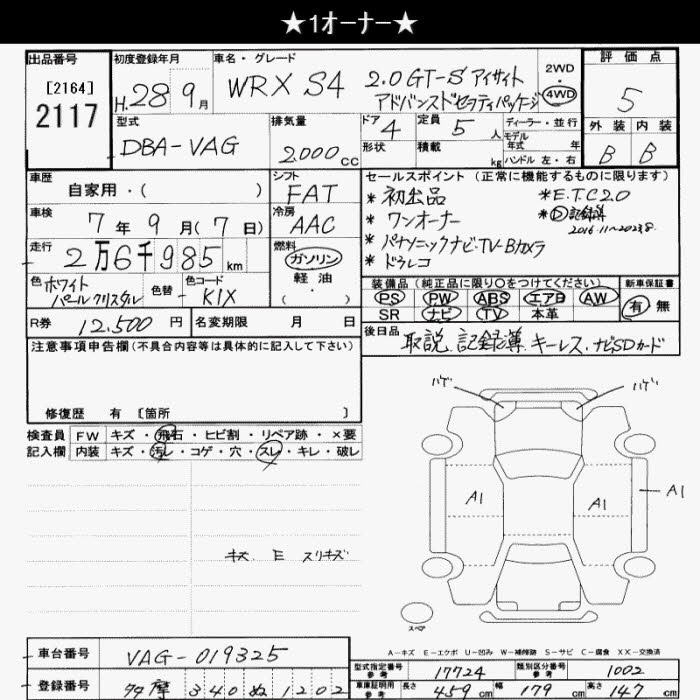 ★1オーナー★
出品番号
[2164]
2117
初度登録年月
H.28年9月
車名・グレード
WRX S4 2.0GT-S アイサイト
アドバンスドセフティパッケージ
2WD
・
4WD
評価点
5
外装 内装
B B
型式
DBA-VAG
排気量
2,000cc
ドア 4
形状
定員 5人
積載 kg
ディーラー・並行
モデル
年式 年
ハンドル 左・右
車歴
自家用・( )
シフト
FAT
車検
7年9月(7日)
冷房
AAC
走行
2万6千985km
燃料
ガソリン
軽油
・
( )
色 ホワイト
パールクリスタル
色替
色コード
K1X
R券 12,500円
名変期限 月 日
セールスポイント (正常に機能するものに限ります)
* 初出品
* ワンオーナー
* パナソニックナビ・TV-Bカメラ
* ドラレコ
* E.T.C2.0
* D記録簿
2016.11~2023.8.
装備品 (純正品に限り○をつけてください)
PS PW ABS エアB AW
SR ナビ TV 本革
新車保証書
有 無
後日品
取説、記録簿、キーレス、ナビSDカード
注意事項申告欄 (不具合内容等は具体的に記入して下さい)
修復歴 有 [箇所 ]
検査員
記入欄
FW キズ・飛石・ヒビ割・リペア跡・×要
内装 キズ・汚レ・コゲ・穴・スレ・キレ・破レ
キズ E スリキズ
ハゲ ハゲ
A1 A1 A1
スペア
A-キズ E-エクボ U-凹み W-補修跡 S-サビ C-腐食 XX-交換済
車台番号
VAG-019325
登録番号
多摩 340 ぬ 1202
型式指定番号
参考
17724
類別区分番号
参考
1002
車庫証明用
参考
長さ 459cm
幅 179cm
高さ 147cm